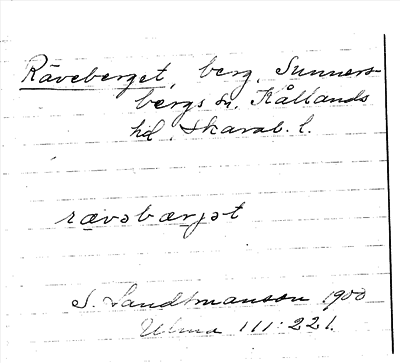 Räveberget, berg, Sunners-
bergs sn. Kållands
hd. Skarab. l.
rævəbærjət
S. Landtmanson 1900
Ulma 111:221.